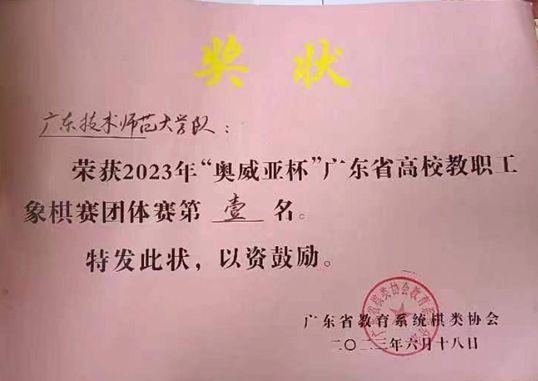 奖状
广东技术师范大学队：
荣获2023年“奥威亚杯”广东省高校教职工
象棋赛团体赛第壹名。
特发此状，以资鼓励。
广东省教育系统棋类协会
二〇二三年六月十八日